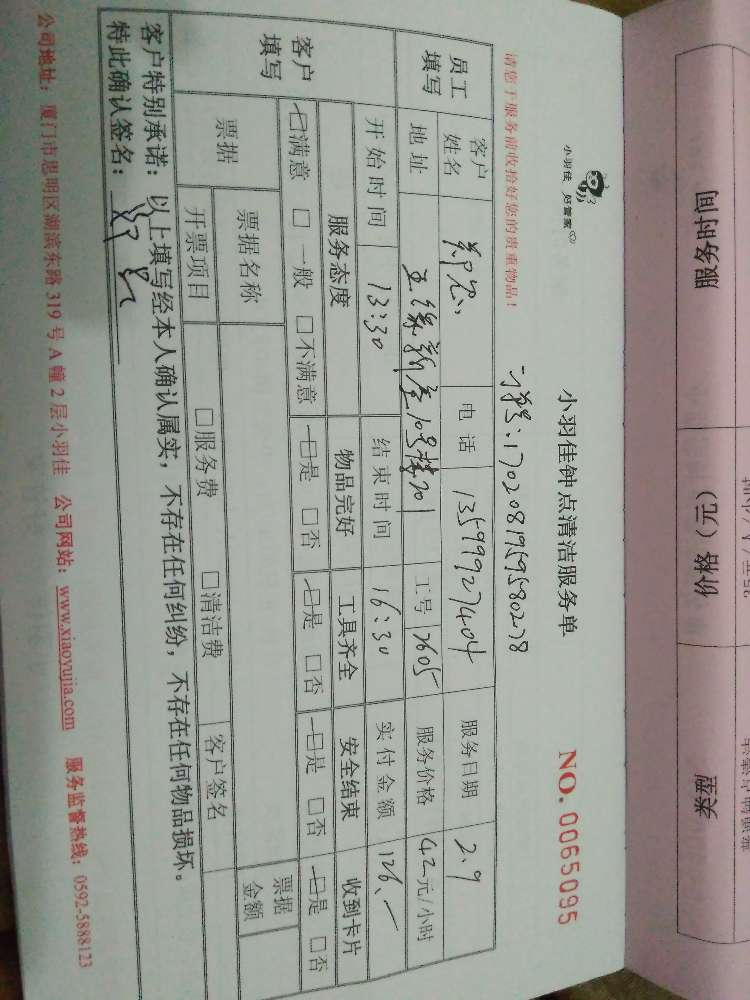 小羽佳 好管家
小羽佳钟点清洁服务单
NO. 0065095
请您于服务前收拾好您的贵重物品！
17020819595802278
员工填写 客户姓名 电话 13599927404 服务日期 2.9
地址 10号楼201 工号 2605 服务价格 42元/小时
开始时间 13:30 结束时间 16:30 实付金额 126.
客户填写 服务态度 物品完好 工具齐全 安全结束 收到卡片
口满意 口一般 口不满意 口是 口否 口是 口否 口是 口否 口是 口否
票据 票据名称 票据金额
开票项目 口服务费 口清洁费 客户签名
客户特别承诺：以上填写经本人确认属实，不存在任何纠纷，不存在任何物品损坏。
特此确认签名：
公司地址：厦门市思明区湖滨东路 319 号 A 幢 2 层小羽佳 公司网站：www.xiaoyujia.com 服务监督热线：0592-5888123
服务时间 价格（元） 类型